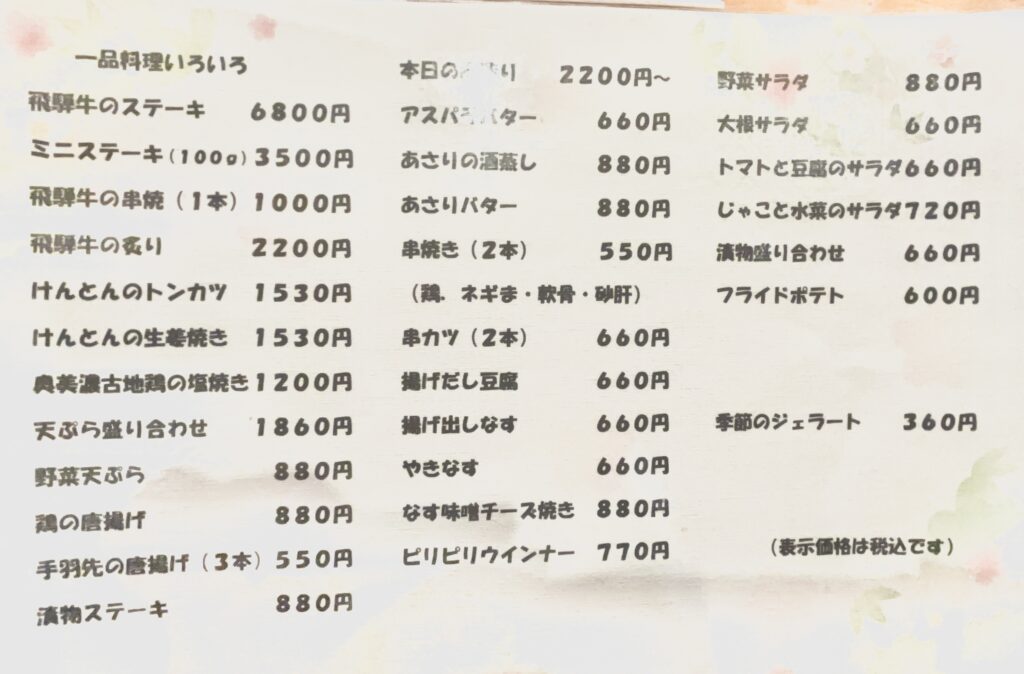 一品料理いろいろ
飛騨牛のステーキ 6800円
ミニステーキ(100g) 3500円
飛騨牛の串焼(1本) 1000円
飛騨牛の炙り 2200円
けんとんのトンカツ 1530円
けんとんの生姜焼き 1530円
奥美濃古地鶏の塩焼き 1200円
天ぷら盛り合わせ 1860円
野菜天ぷら 880円
鶏の唐揚げ 880円
手羽先の唐揚げ(3本) 550円
漬物ステーキ 880円
本日の り 2200円~
アスパラバター 660円
あさりの酒蒸し 880円
あさりバター 880円
串焼き(2本) 550円
(鶏.ネギま・軟骨・砂肝)
串カツ(2本) 660円
揚げだし豆腐 660円
揚げ出しなす 660円
やきなす 660円
なす味噌チーズ焼き 880円
ピリピリウインナー 770円
野菜サラダ 880円
大根サラダ 660円
トマトと豆腐のサラダ 660円
じゃこと水菜のサラダ 720円
漬物盛り合わせ 660円
フライドポテト 600円
季節のジェラート 360円
(表示価格は税込です)